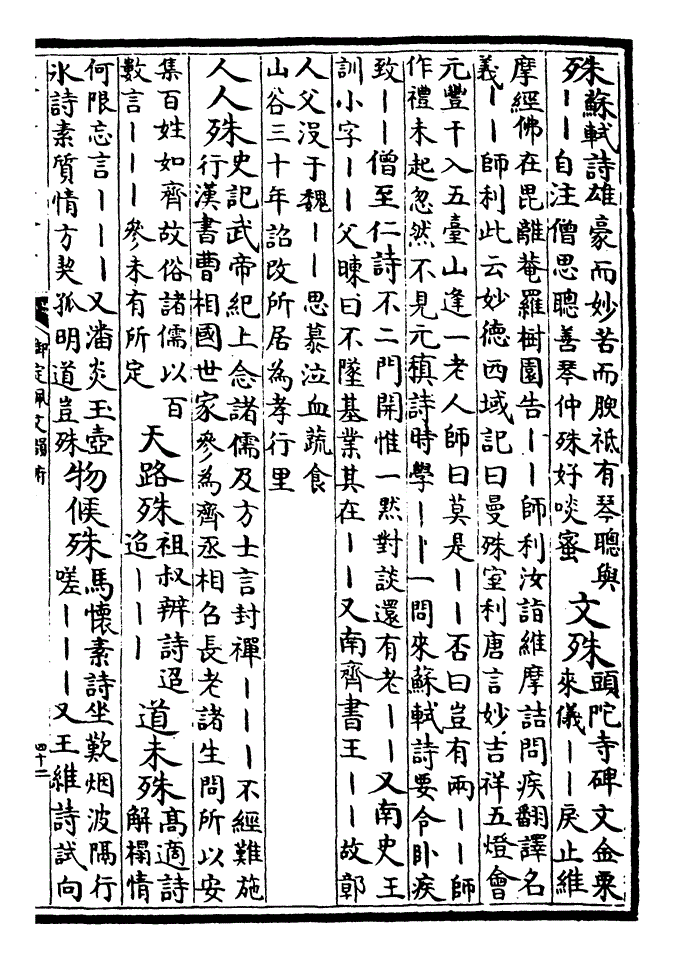 殊
蘇軾詩雄豪而妙苦而腴祗有琴聰與
丨丨自注僧思聰善琴仲殊好啖蜜
文殊
頭陀寺碑文金粟
來儀丨丨戾止維
摩經佛在毘離菴羅樹園告丨丨師利汝詣維摩詰問疾翻譯名
義丨丨師利此云妙德西域記曰曼殊室利唐言妙吉祥五燈會
元豐干入五臺山逢一老人師曰莫是丨丨否曰豈有兩丨丨師
作禮未起忽然不見元稹詩時學丨丨一問來蘇軾詩要令卧疾
致丨丨僧至仁詩不二門開惟一黙對談還有老丨丨又南史王
訓小字丨丨父暕曰不墜基業其在丨丨又南齊書王丨丨故鄣
人父没于魏丨丨思慕泣血蔬食
山谷三十年詔改所居為孝行里
人人殊
史記武帝紀上念諸儒及方士言封禪丨丨丨不經難施
行漢書曹相國世家參為齊丞相召長老諸生問所以安
集百姓如齊故俗諸儒以百
數言丨丨丨參未有所定
天路殊
祖叔辨詩迢
迢丨丨丨
道未殊
高適詩
解榻情
何限忘言丨丨丨又潘炎玉壺
氷詩素質情方契孤明道豈殊
物候殊
馬懷素詩坐歎烟波隔行
嗟丨丨丨又王維詩試向
御定佩文韻府
四十二